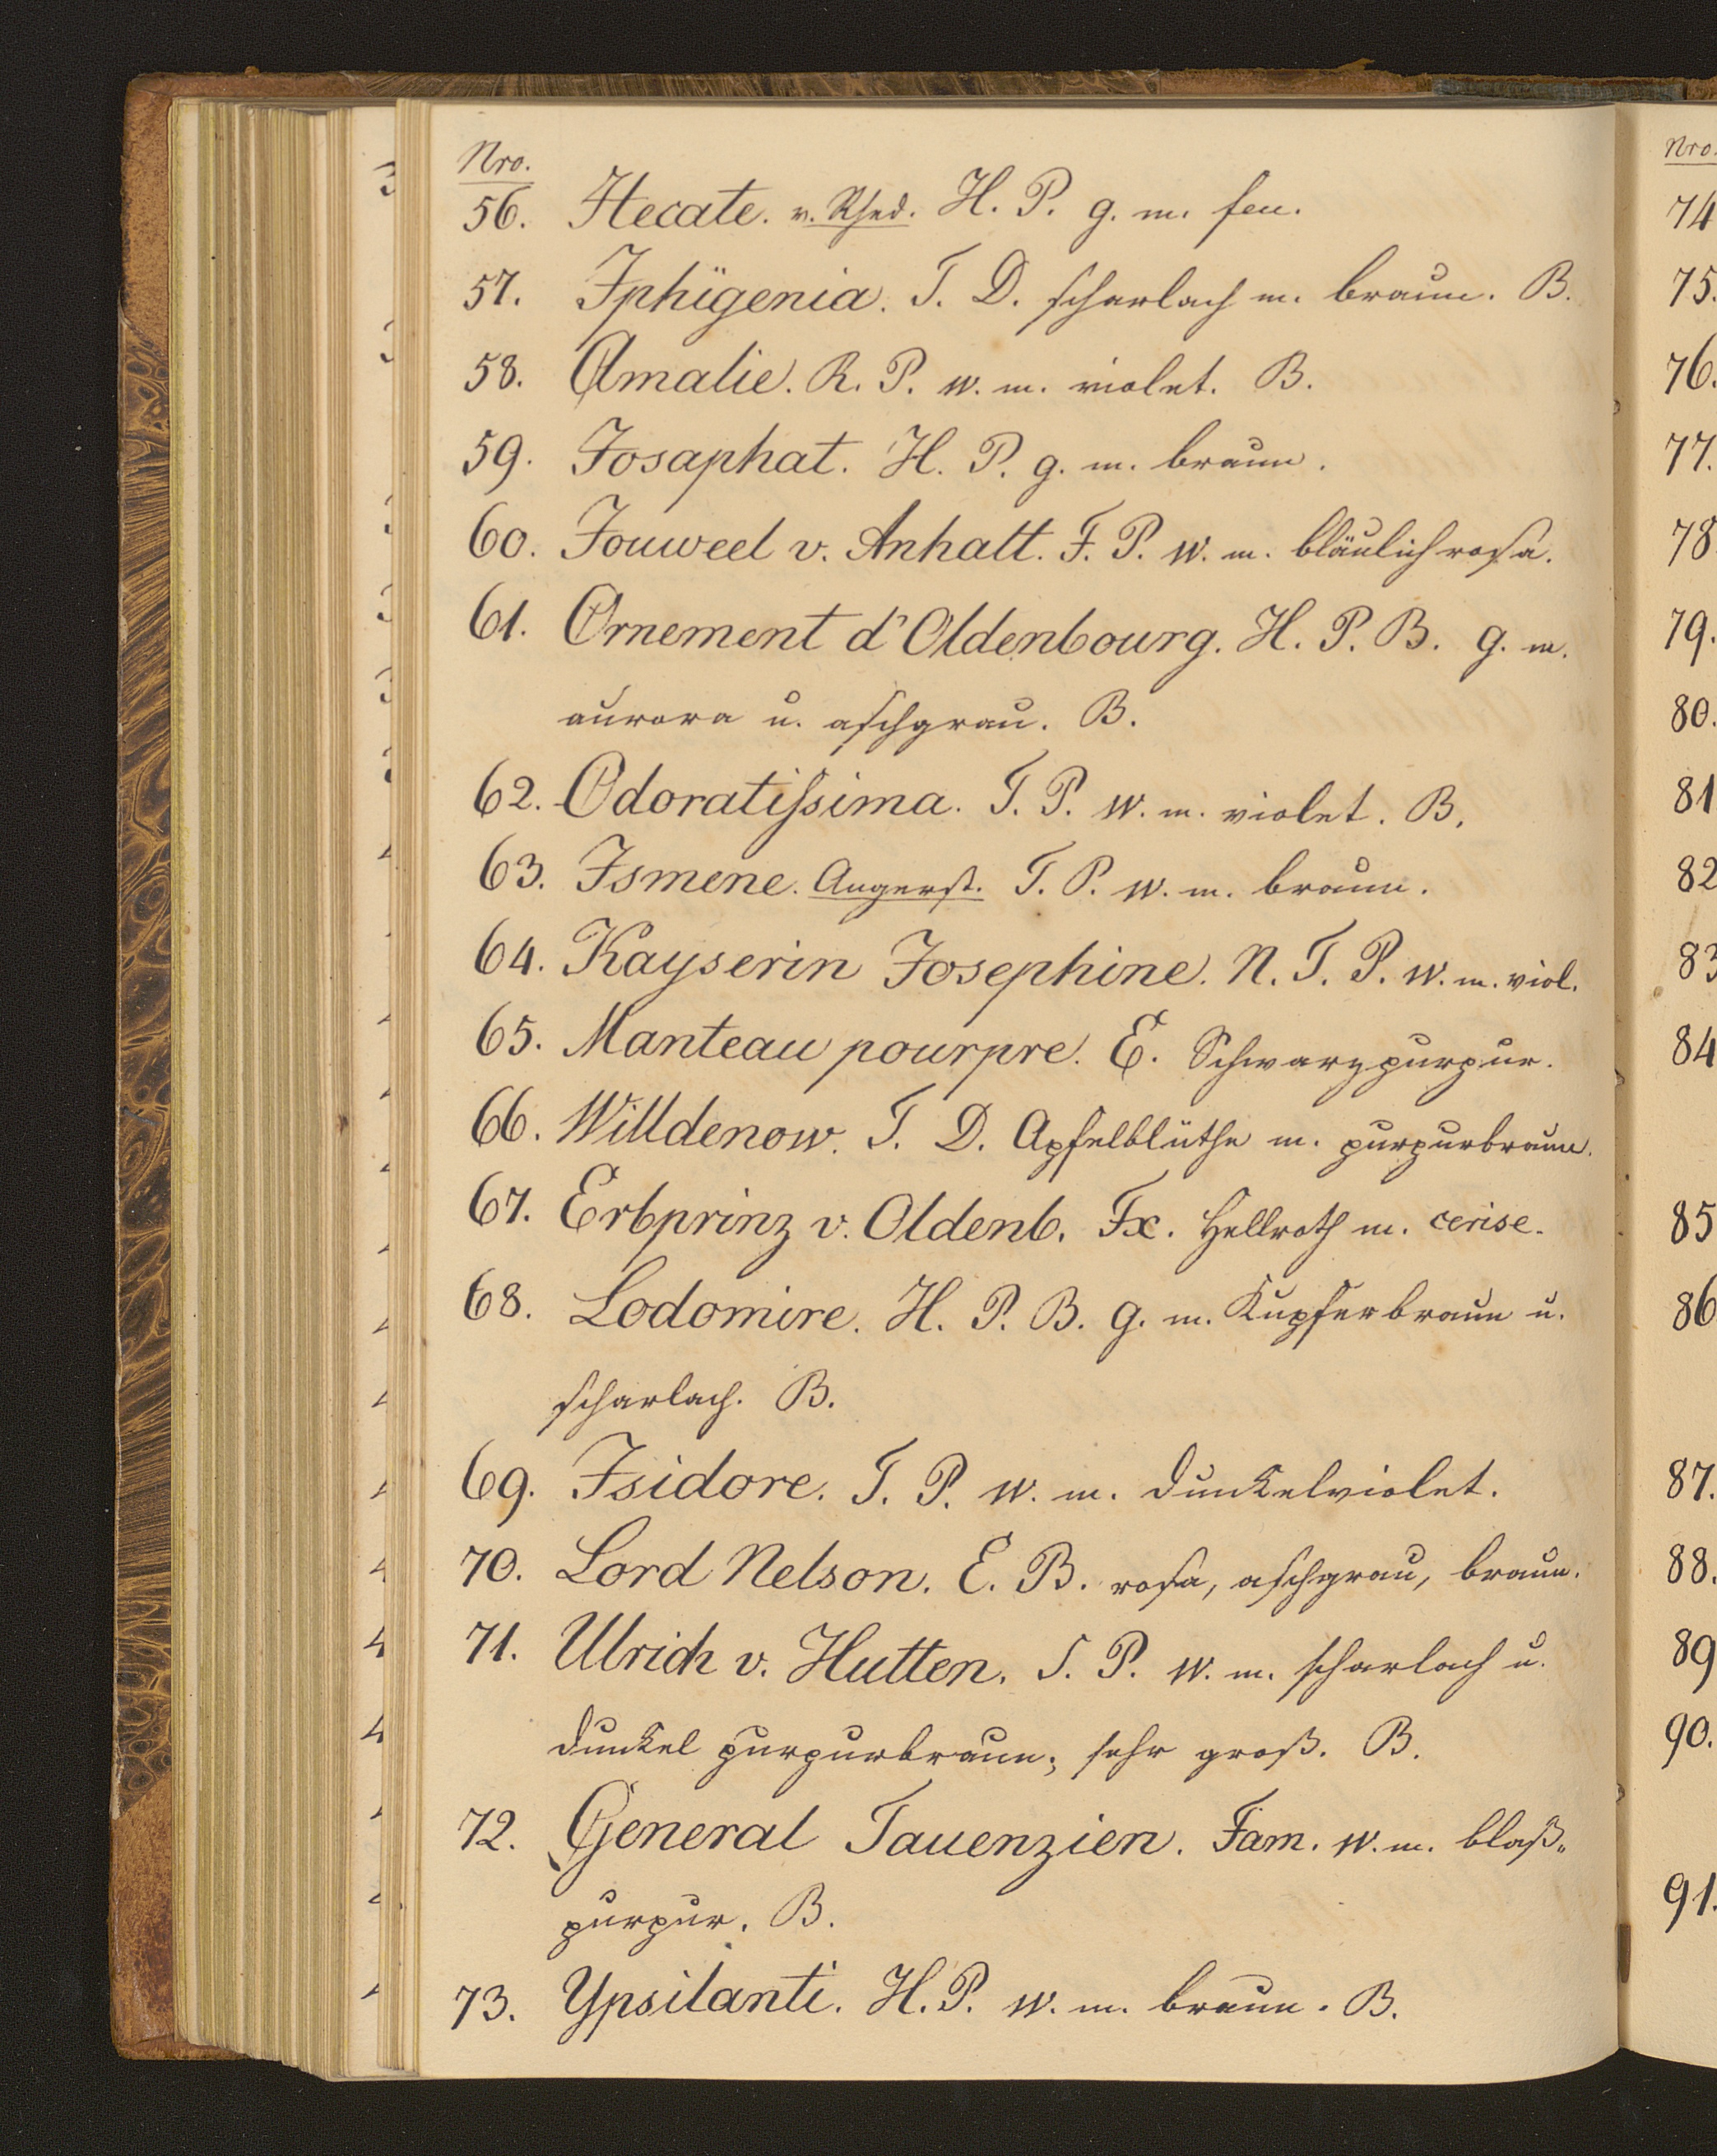 Nro.
56. Hecate. v. Rhed. H. P. g. m. feu.
57. Iphigenia. T. D. scharlach m. braun. B.
58. Amalie. R. P. w. m. violet. B.
59. Josaphat. H. P. g. m. braun.
60. Jouweel v. Anhalt. F. P. w. m. bläulich rosa.
61. Ornement d'Oldenbourg. H. P. B. g. m.
aurora u. aschgrau. B.
62. Odoratissima. T. P. w. m. violet. B.
63. Ismene. Angerst. T. P. w. m. braun.
64. Kayserin Josephine. N. T. P. w. m. viol.
65. Manteau pourpre. E. Schwarzpurpur.
66. Willdenow. T. D. Apfelblüthe m. purpurbraun.
67. Erbprinz v. Oldenb. Fx. Hellroth m. cerise.
68. Lodomire. H. P. B. g. m. Kupferbraun u.
scharlach. B.
69. Isidore. T. P. w. m. dunkelviolet.
70. Lord Nelson. E. B. rosa, aschgrau, braun.
71. Ulrich v. Hutten. S. P. w. m. scharlach u.
dunkel purpurbraun; sehr groß. B.
72. General Tauenzien. Fam. w. m. blaß-
purpur. B.
73. Ypsilanti. H. P. w. m. braun. B.
Nro.
74
75.
76.
77.
78
79.
80.
81
82
83
84
85
86
87.
88.
89
90.
91.